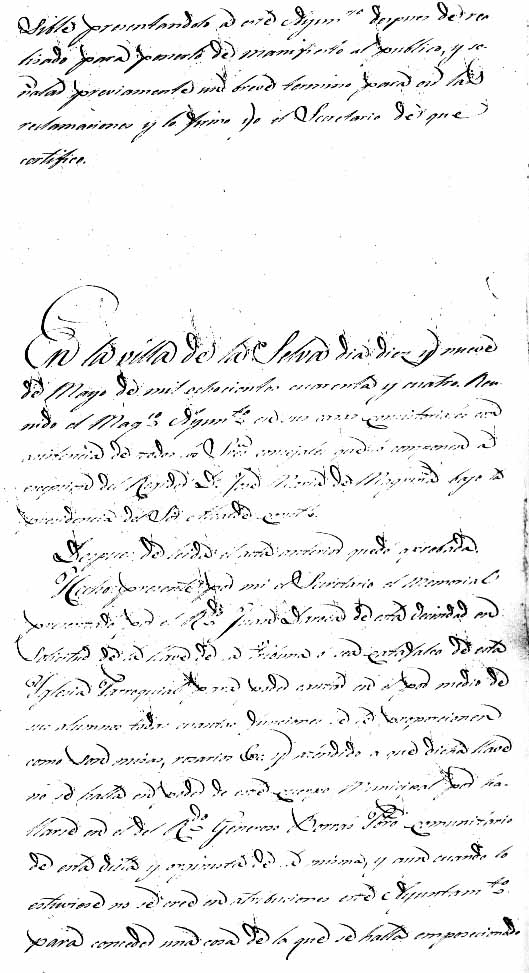 presentandolo á este Ayunt.to despues de rea
lisado para ponerlo de manifiesto al publico, y se
ñalar previamente un breve termino para oir las
reclamaciones y lo firmo yo el Secretario de que
certifico.
En la villa de la Selva dia diez y nueve
de Mayo de mil ochocientos cuarenta y cuatro. Reu
nido el Mag.co Ayunt.to en sus casas consistoriales con
asistencia de todos los Sres concejales que lo componen á
excepcion del Regidor D. José Maria de bajo la
presidencia del Sor Alcalde
Despues de leida el acta anterior quedó aprobada.
Hecho presente por mi el Secretario el Memorial
presentado por el R.do Juan de esta vecindad en
solicitud de la llave de la tribuna ó sea catafalco de esta
Yglesia Parroquial para poder cantar en el por medio de
sus alumnos todas cuantas funciones se le proporcionen
como son misas, rosarios &c. y atendido a que dicha llave
no se halla en poder de este cuerpo Municipal por ha
llarse en el del R.do Generoso Borras Pbro. comunitario
de esta dicha y organista de la misma, y aun cuando lo
estuviese no se cree en atribuciones este Ayuntam.to
para conceder una cosa de la que se halla emposecionado